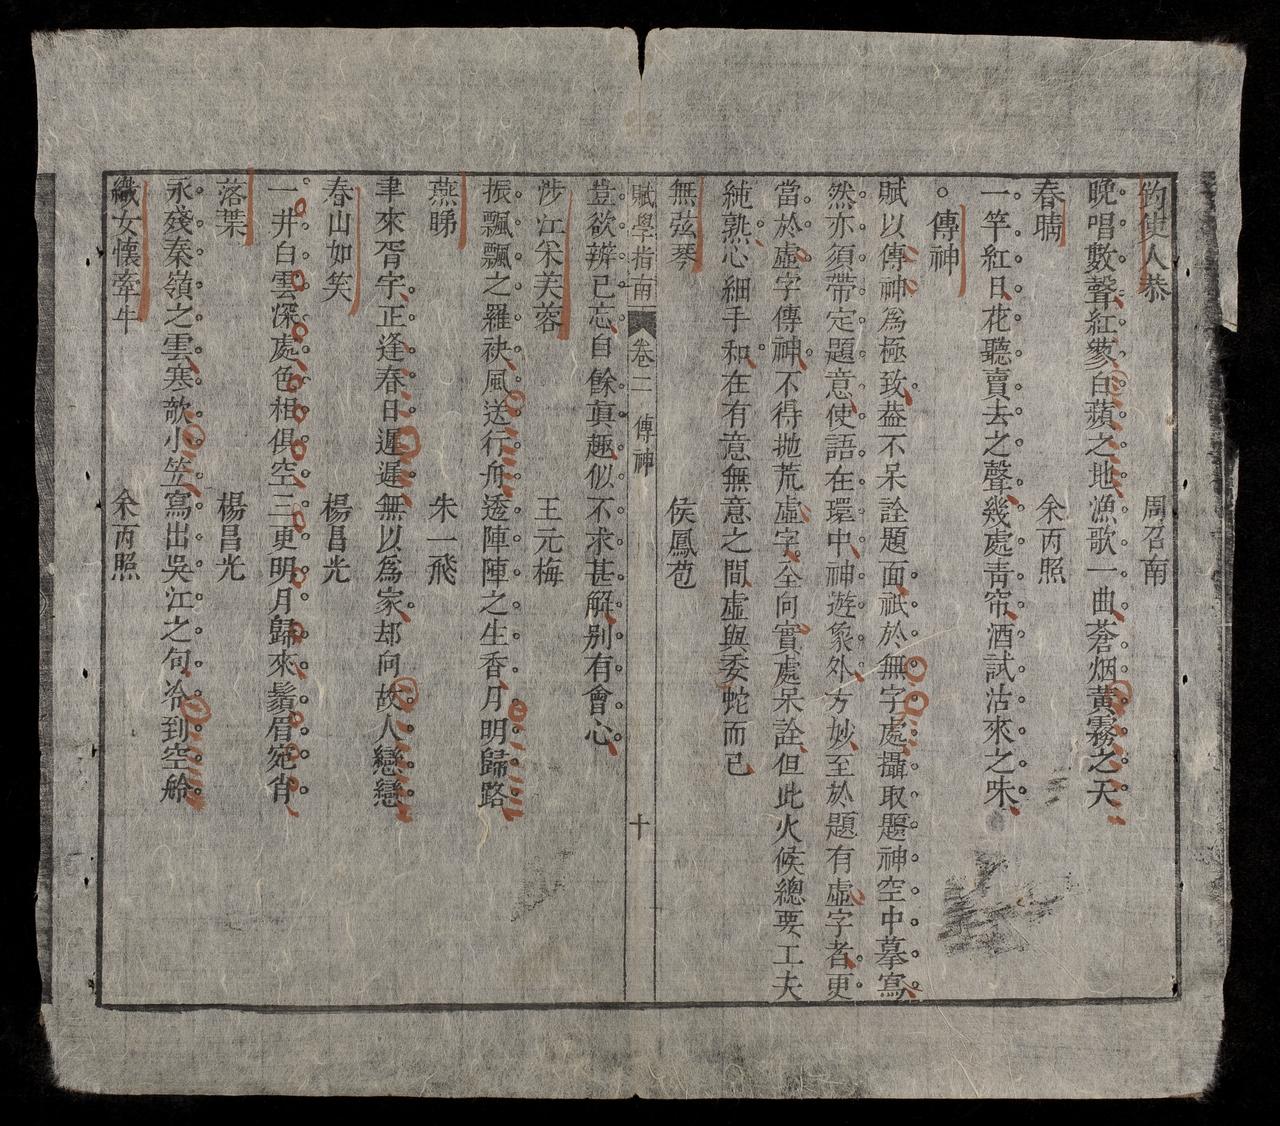 釣叟人恭 周召南
晚唱數聲紅蓼白蘋之地漁歌一曲蒼烟黃霧之天
春晴 余丙照
一竿紅日花聽賣去之聲幾處青帘酒試沽來之味
。傳神
賦以傳神爲極致葢不呆詮題面祇於無字處攝取題神空中摹寫
然亦須帶定題意使語在環中神遊象外方妙至於題有虛字者更
當於虛字傳神不得拋荒虛字全向實處呆詮但此火候總要工夫
純熟心細手和在有意無意之間虛與委蛇而已
無弦琴 侯鳳苞
賦學指南 卷二 傳神 十
豈欲辨已忘自餘真趣似不求甚解別有會心
涉江采芙蓉 王元梅
振飄飄之羅袂風送行舟透陣陣之生香月明歸路
燕睇 朱一飛
聿來胥宇正逢春日遲遲無以爲家却向故人戀戀
春山如笑 楊昌光
一井白雲深處色相俱空三更明月歸來鬚眉宛肖
落葉 楊昌光
永殘秦嶺之雲寒欹小笠寫出吳江之句冷到空舲
織女懷牽牛 余丙照